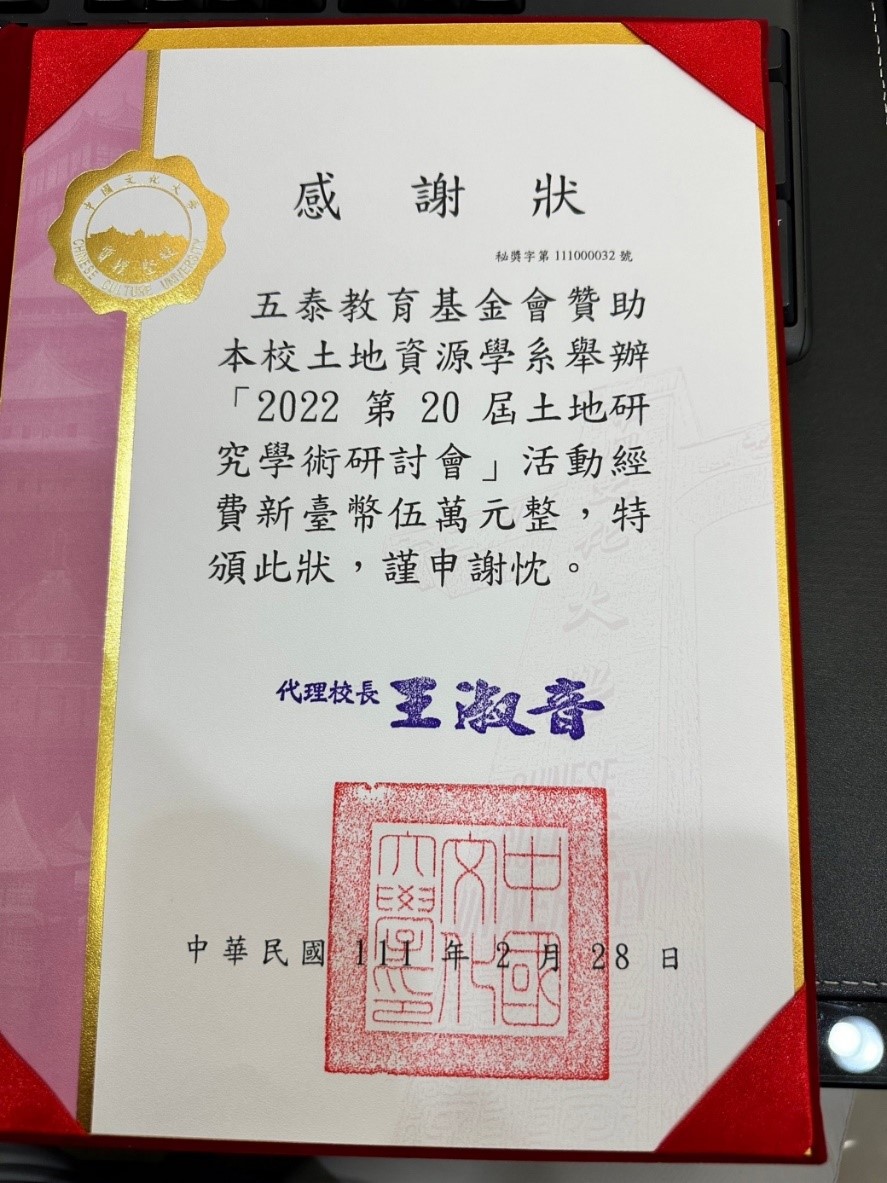 感謝狀
秘獎字第 111000032 號
五泰教育基金會贊助
本校土地資源學系舉辦
「2022 第 20 屆土地研
究學術研討會」活動經
費新臺幣伍萬元整，特
頒此狀，謹申謝忱。
代理校長 王淑音
中華民國 111 年 2 月 28 日
中國文化大學印
中國文化大學
質樸堅毅
CHINESE CULTURE UNIVERSITY